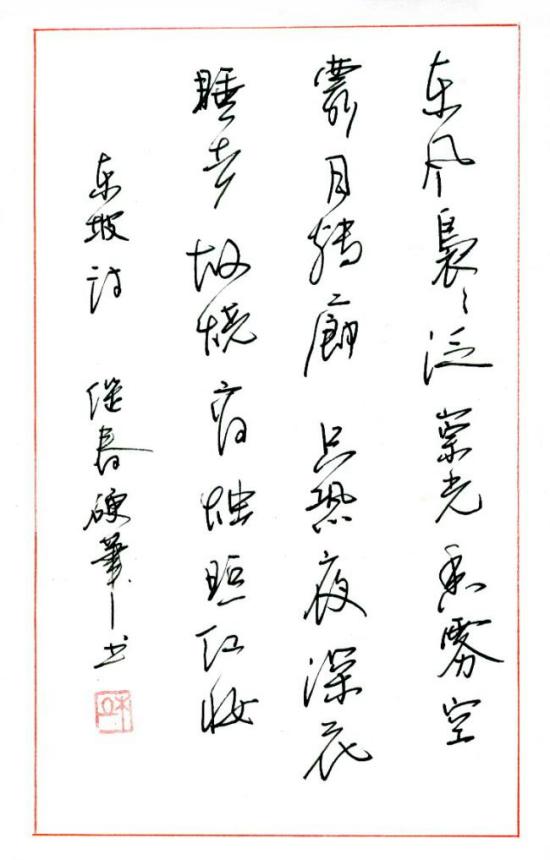 东风裊々泛崇光香雾空
霥月转廊只恐夜深花
睡去故烧高烛照红妆
东坡诗 继春硬筆书